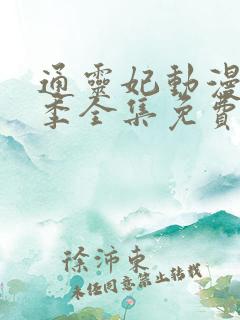 通靈妃動漫
季全集免費
徐沛東
未经同意禁止转载